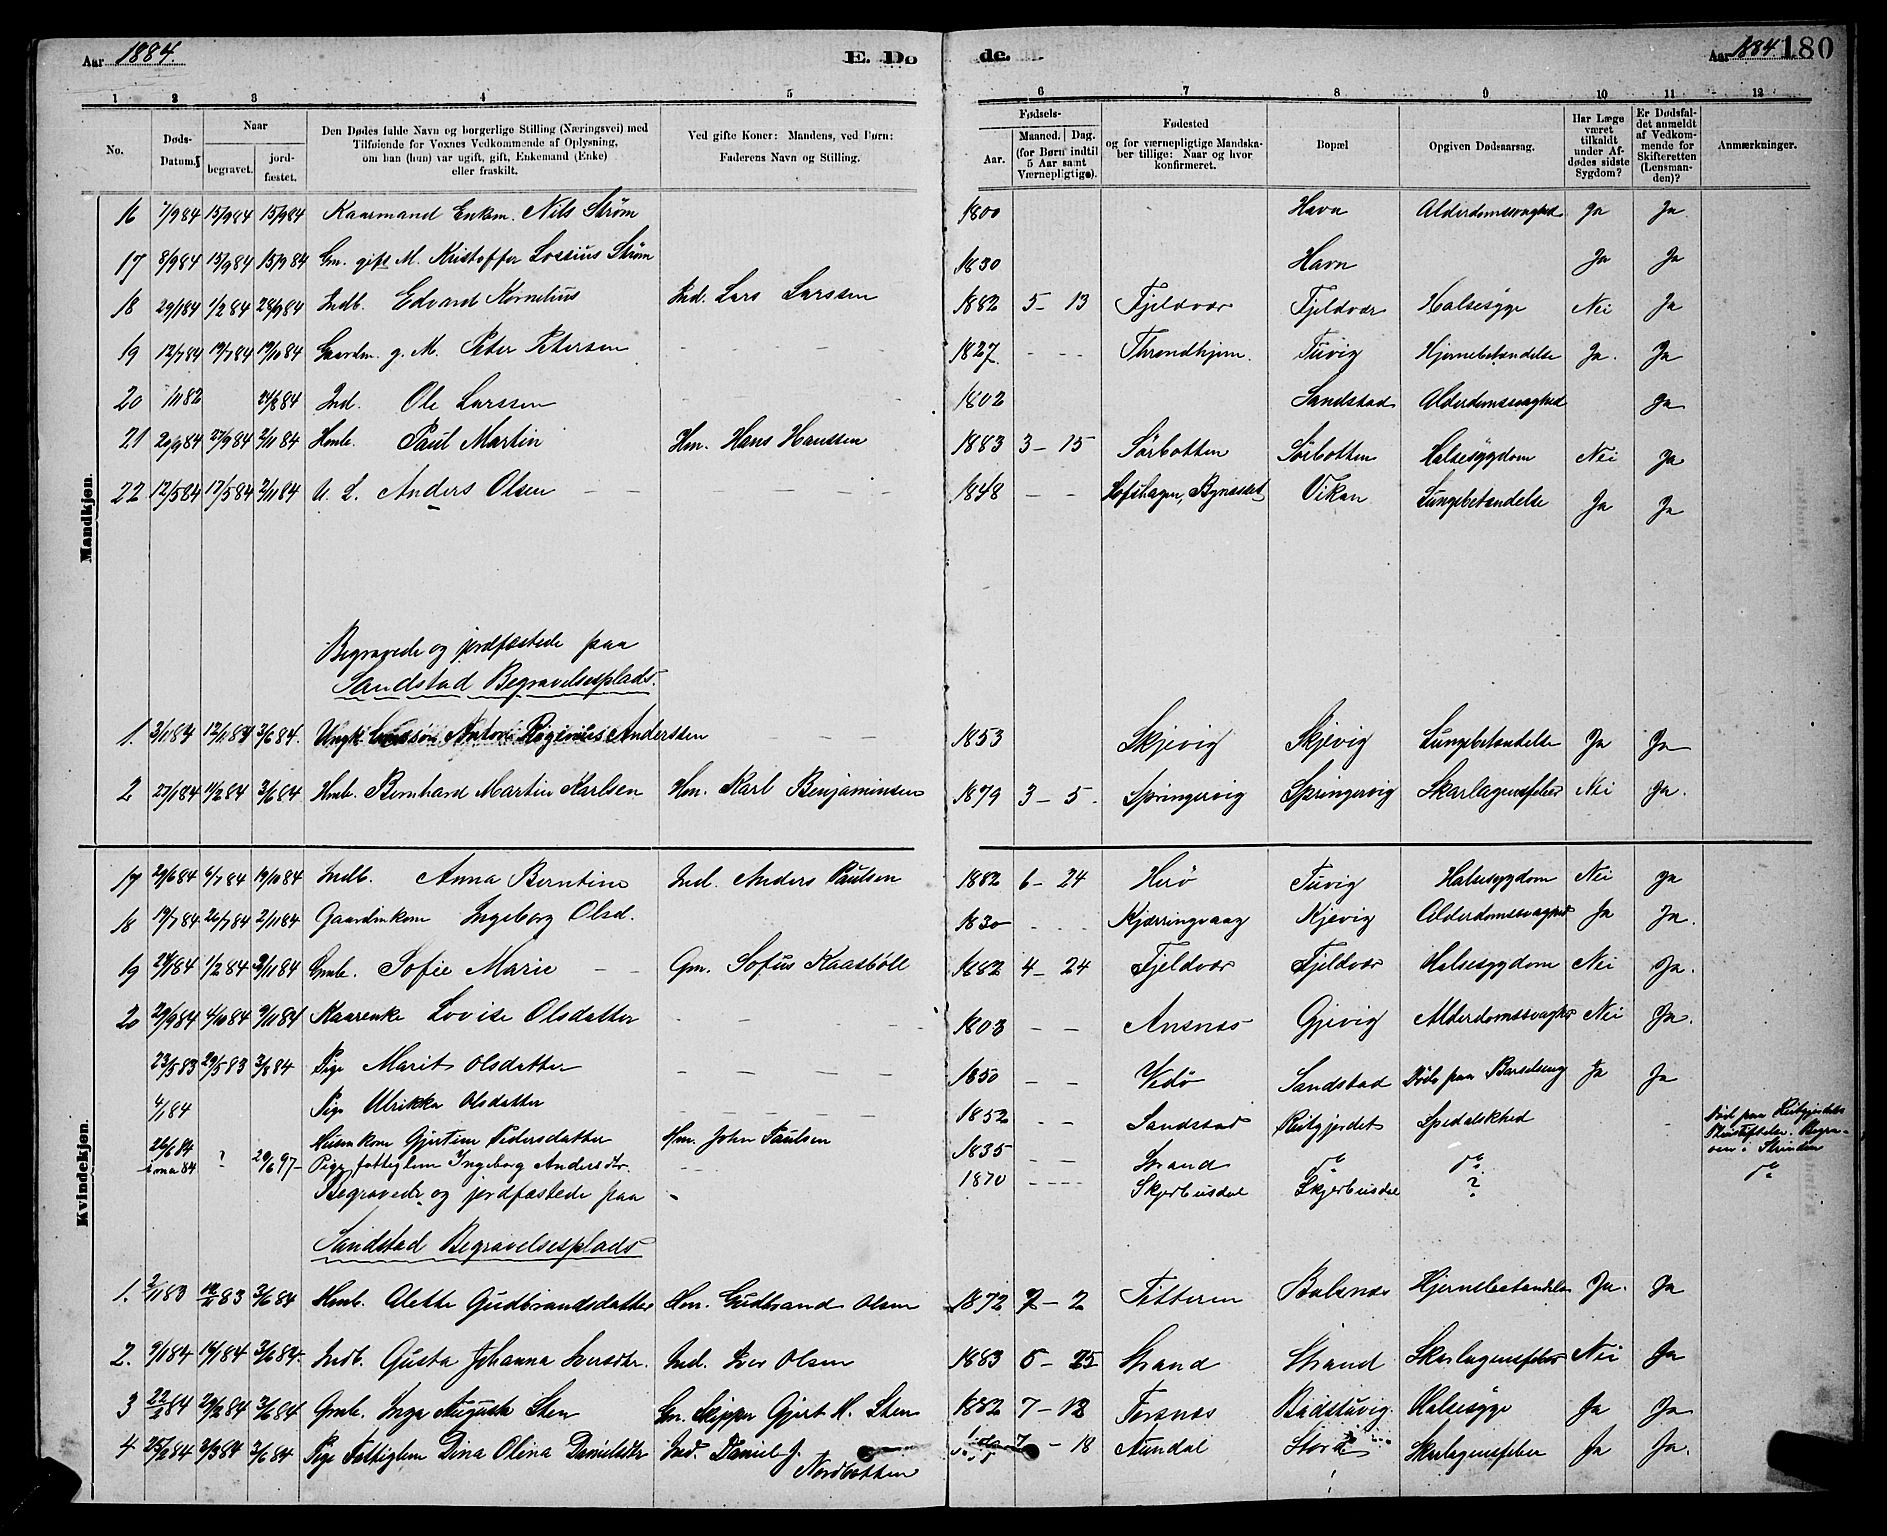 Aar 1884.
E. Dø
de.
Aar 1884.
180
1 2 3 4 5 6 7 8 9 10 11 12
No.
Døds-Datum.
Naar
begravet.
jordfæstet.
Den Dødes fulde Navn og borgerlige Stilling (Næringsvei) med
Tilføiende for Voxnes Vedkommende af Oplysning,
om han (hun) var ugift, gift, Enkemand (Enke)
eller fraskilt.
Ved gifte Koner: Mandens, ved Børn:
Faderens Navn og Stilling.
Fødsels-
Aar.
Maaned. Dag.
(for Børn indtil
5 Aar samt
Værnepligtige).
Fødested
og for værnepligtige Mandska-
ber tillige: Naar og hvor
konfirmeret.
Bopæl
Opgiven Dødsaarsag.
Har Læge
været
tilkaldt
under Af-
dødes sidste
Sygdom?
Er Dødsfal-
det anmeldt
af Vedkom-
mende for
Skifteretten
(Lensman-
den)?
Anmærkninger.
Mandkjøn.
16 7/9 84 15/9 84 15/9 84 Kaarmand Enkem. Nils Strøm 1800 Havn Alderdomssvaghed Ja Ja
17 8/9 84 15/9 84 15/9 84 Gm. gift M. Kristoffer Lossius Strøm 1830 Havn Ja Ja
18 29/1 84 1/2 84 28/9 84 Indb. Edvard Kornelius Ind. Lars Larssen 1882 5 - 13 Fjeldvær Fjeldvær Halsesyge Nei Ja
19 12/7 84 19/7 84 19/10 84 Gaardm. g. M. Peter Petersen - - - - 1827 - - - Throndhjem. Tuvig Hjernebetændelse Ja. Ja
20 1/11 82 24/8 84 Ind. Ole Larssen 1802 Sandstad Alderdomssvaghed Ja
21 20/9 84 27/9 84 2/11 84 Hmb. Paul Martin Hm. Hans Hanssen 1883 3 - 15 Sørbotten Sørbotten Halsesygdom Nei Ja
22 12/5 84 17/5 84 2/11 84 U. L. Anders Olsen - - - - 1848 - - Lofshagen, Bynesset Vikan Lungebetændelse Ja Ja
Begravede og jordfæstede paa
Sandstad Begravelsesplads.
1. 3/1 84 12/1 84 3/6 84. Ungk. Anton Andersen 1853 Skjevig Skjevig Lungebetændelse Ja Ja
2 27/1 84 11/2 84 3/6 84 Hmb. Bernhard Martin Karlsen Hm. Karl Benjaminsen 1879 3 - 5. Springervig Springervig Skarlagensfeber Nei Ja.
Kvindekjøn.
17 29/6 84 6/7 84 19/10 84 Indb. Anna Berntine Ind. Anders Paulsen 1882 6 - 24 Herø Tuvig Halsesygdom Nei Ja
18 19/7 84 26/7 84 2/11 84 Gaardmkone Ingeborg Olsd. 1830 - - - Kjærringvaag Kjevig Alderdomssvaghed Ja Ja.
19 24/1 84 1/2 84 9/11 84 Gmb. Sofie Marie - - Gm. Sofus Kaasbøll 1882 4 - 24 Fjeldvær Fjeldvær Halsesygdom Nei Ja.
20 29/9 84 4/10 84 9/11 84 Kaarenke Lovise Olsdatter - - - - 1803 - - Ansnes Gjevig Alderdomssvaghed Nei Ja.
23/5 83 29/5 83 3/8 84 Pige Marit Olsdatter - - - - 1850 - - Vedø Sandstad Døde paa Barselseng Ja Ja
4/1 84 Pige Ulrikke Olsdatter - - - - 1852 - - Sandstad Reitgjerdet Spedalskhed - Død paa Reitgjerdets
Pleiestiftelse. Begra-
ven i Strinden
26/6 84 Husmkone Gjertine Pedersdatter Hm. John Paulsen 1835 - - Strand do do do
i mai 84 ? 20/6 97 - Pige, fattiglem Ingeborg Andersdtr. - - 1870 - - - - Skjerbusdal Skjerbusdal ?
Begravede og jordfæstede paa -
Sandstad Begravelsesplads
1. 2/11 83 10/11 83 3/6 84 Hmb. Olette Gudbrandsdatter Hm. Gudbrand Olsen 1872 7 - 2 Fitteren Balsnes Hjernebetændelse Ja. Ja
2. 9/1 84 16/1 84 3/6 84. Indb. Gusta Johanna Iversdtr. Ind. Iver Olsen 1883 5 - 25 Strand Strand Skarlagensfeber Nei Ja
3 22/2 84 29/2 84 3/6 84 Gmb. Inga Augusta Sten Gm. Skipper Gjert H. Sten 1882 7 - 12 Forsnes Badstuvig Halsesyge Ja Ja
4 25/2 84 3/3 84 3/6 84 Pige Fattiglem Dina Olina Danielsdtr Ind. Daniel J.
Nordbotten 7 - 18 Aundal Skarlagensfeber Ja Ja.